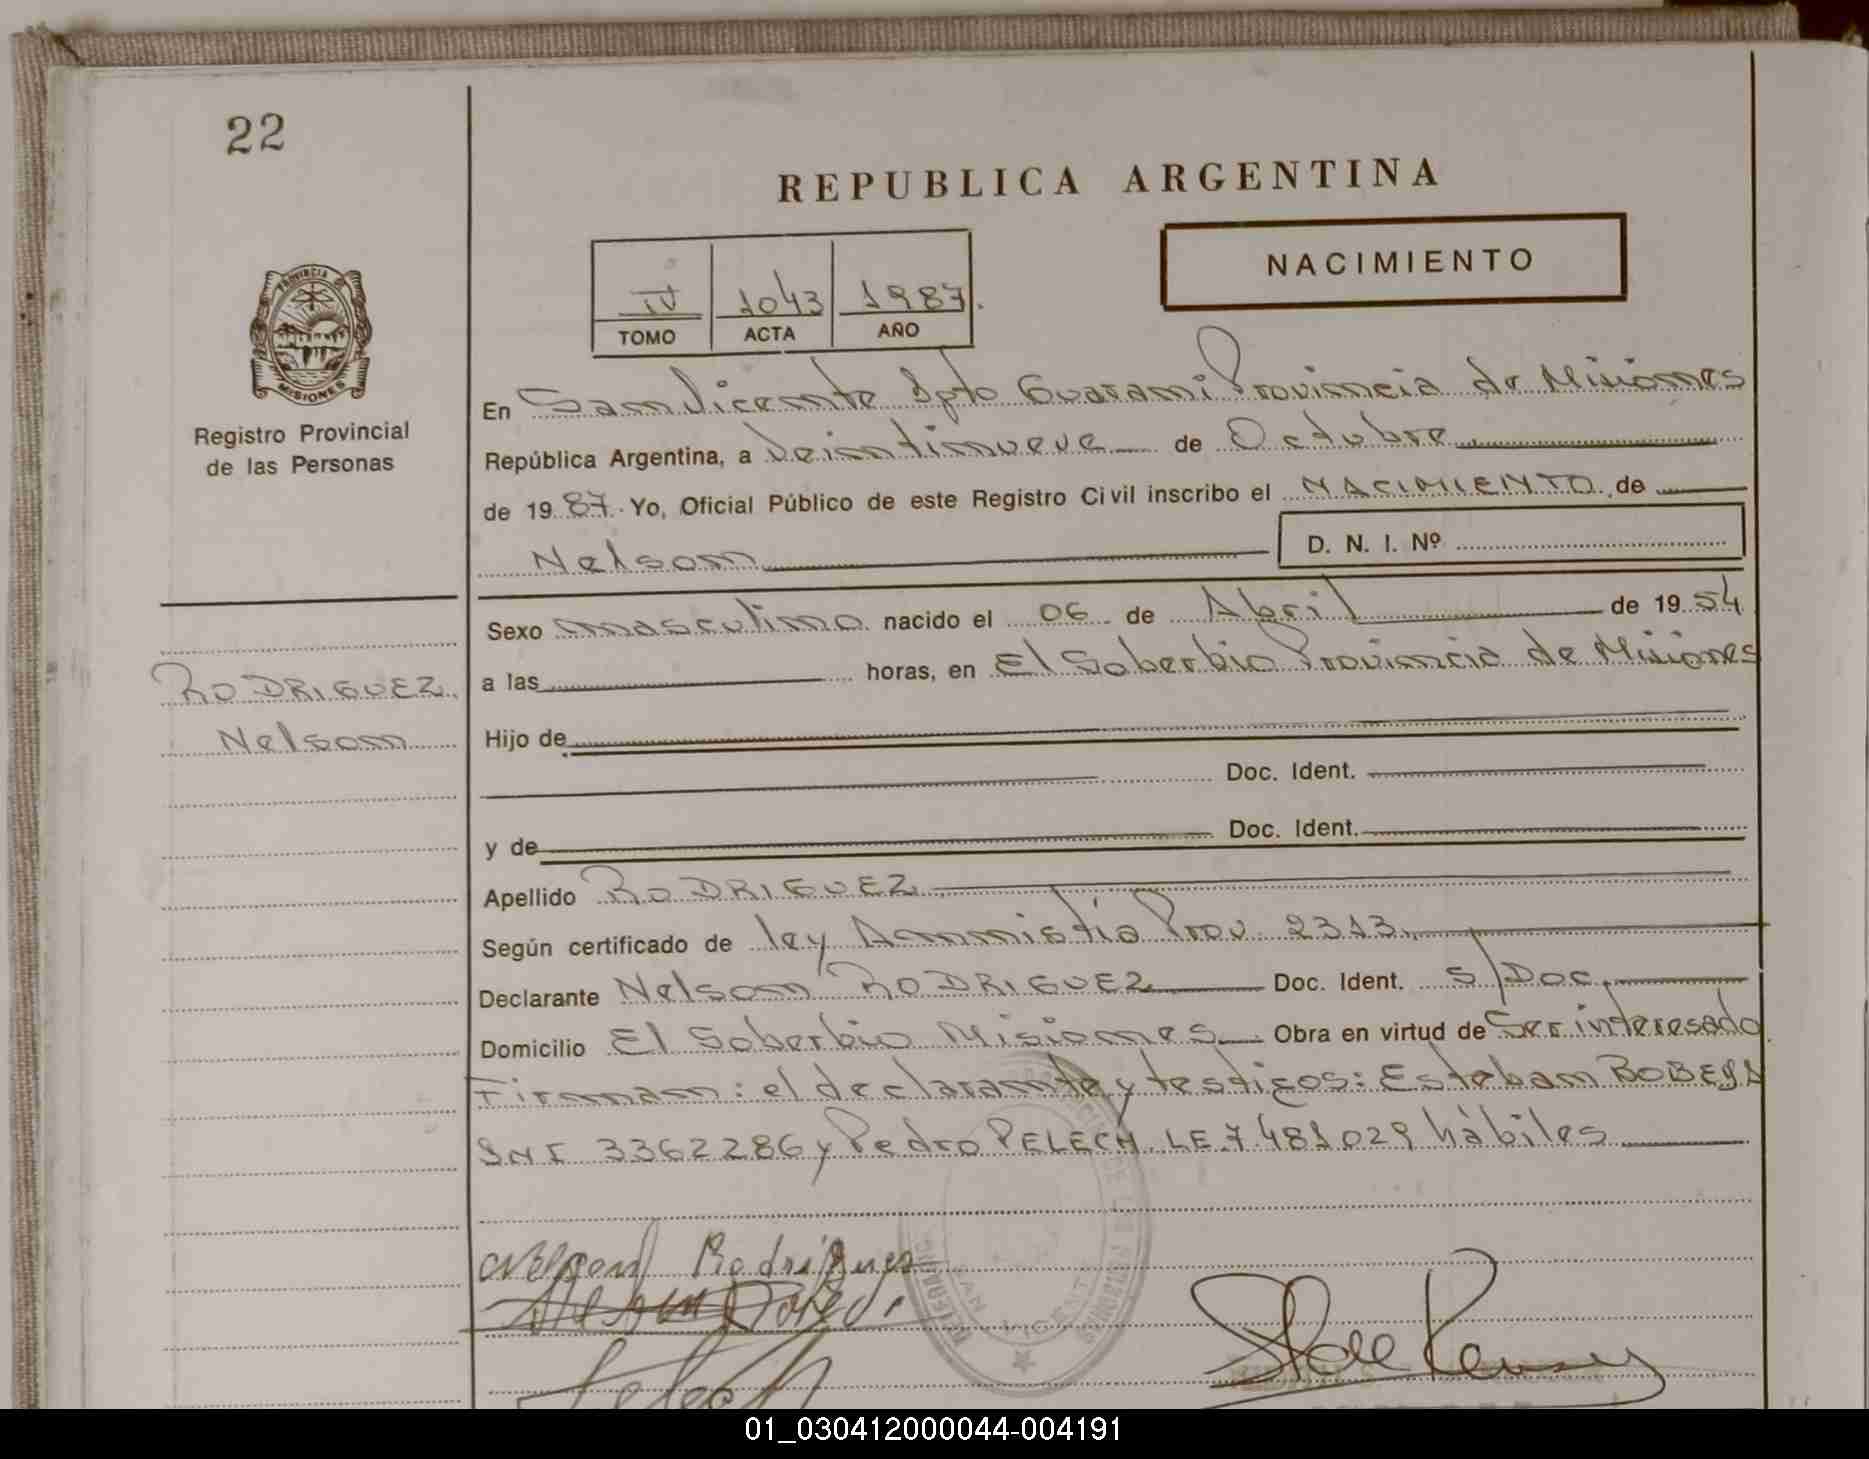 22
REPUBLICA ARGENTINA
NACIMIENTO
IV 1043 1987.
TOMO ACTA AÑO
PROVINCIA DE
MISIONES
Registro Provincial
de las Personas
En San Vicente Dpto Guarani Provincia de Misiones
República Argentina, a Veintinueve de Octubre
de 1987. Yo, Oficial Público de este Registro Civil inscribo el NACIMIENTO de
Nelson D. N. I. Nº
Sexo masculino nacido el 06 de Abril de 1954
a las horas, en El Soberbio Provincia de Misiones
RODRIGUEZ
Nelson
Hijo de
Doc. Ident.
y de Doc. Ident.
Apellido RODRIGUEZ
Según certificado de ley Ammistía Prov. 2313.
Declarante Nelson RODRIGUEZ Doc. Ident. S/Doc.
Domicilio El Soberbio Misiones Obra en virtud de Ser interesado
Firman: el declarante y testigos: Esteban
DNI 3362286 y Pedro PELECH. LE. 7.481029 hábiles
Nelson Rodríguez
SAN VICENTE
Pelech
01_030412000044-004191